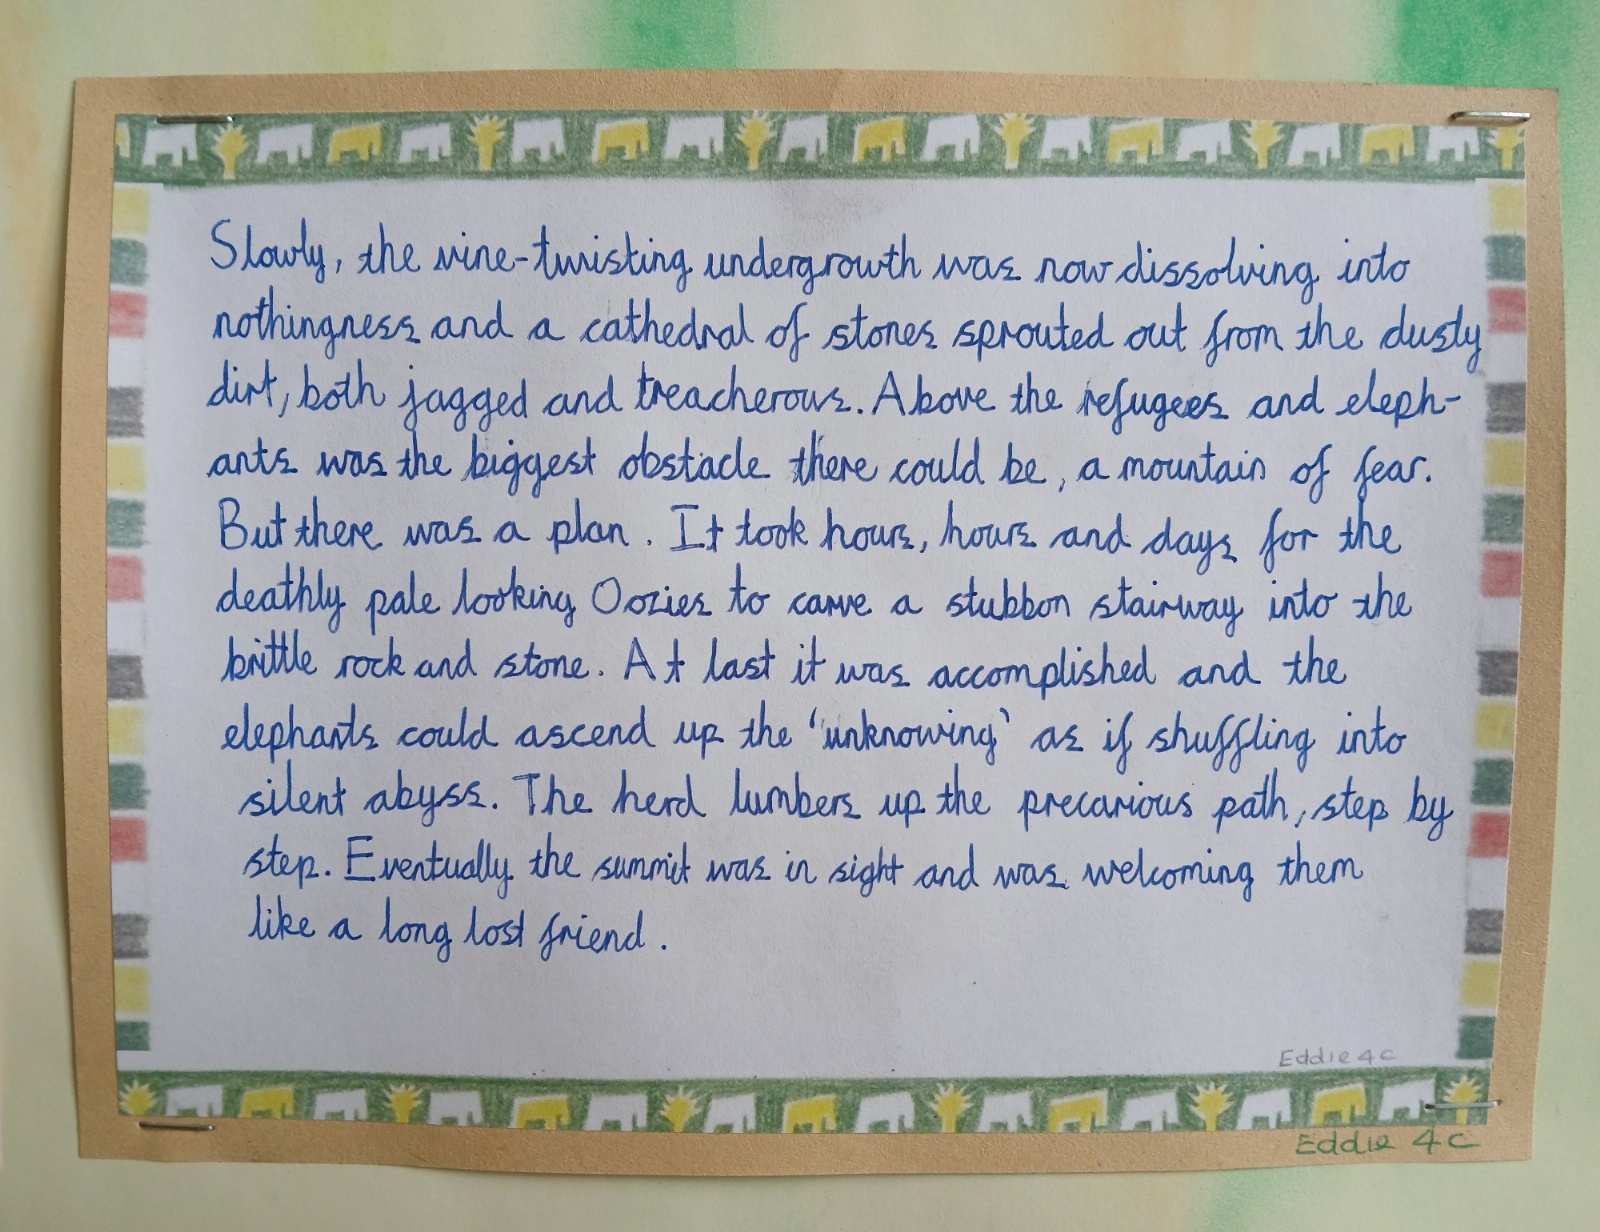 Slowly, the vine-twisting undergrowth was now dissolving into
nothingness and a cathedral of stones sprouted out from the dusty
dirt, both jagged and treacherous. Above the refugees and eleph-
ants was the biggest obstacle there could be, a mountain of fear.
But there was a plan. It took hours, hours and days for the
deathly pale looking Oozies to carve a stubbon stairway into the
brittle rock and stone. At last it was accomplished and the
elephants could ascend up the 'unknowing' as if shuffling into
silent abyss. The herd lumbers up the precarious path, step by
step. Eventually the summit was in sight and was welcoming them
like a long lost friend.
Eddie 4C
Eddie 4C